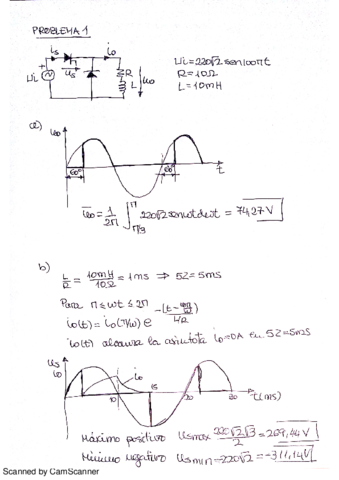 PROBLEMA 1
is
io
Ui
us
R
L
uo
Ui = 220√2 sen100πt
R = 10Ω
L = 10mH
a)
uo
60°
60°
t
uo = 1/2π ∫π/3^π 220√2 senωt dωt = 74,27 V
b)
L/R = 10mH/10Ω = 1ms ⇒ 5Z = 5ms
Para π ≤ ωt ≤ 2π
io(t) = io(π/ω) e
io(t) alcanza la asíntota io = 0A en 5Z = 5ms
us
io
io
10
15
20
30
t(ms)
Máximo positivo Usmax 220√2√3/2 = 269,44V
Mínimo negativo Usmin -220√2 = -311,14V
Scanned by CamScanner